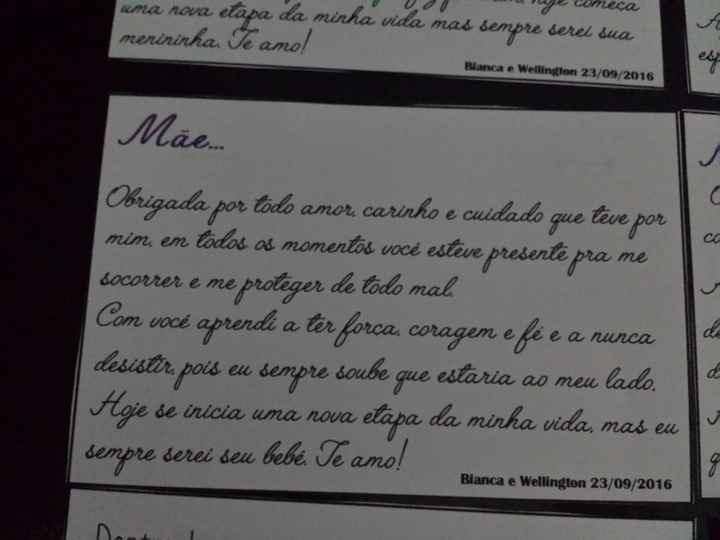 hoje começa
uma nova etapa da minha vida mas sempre serei sua
menininha. Te amo!
Bianca e Wellington 23/09/2016
Mãe...
Obrigada por todo amor, carinho e cuidado que teve por
mim, em todos os momentos você esteve presente pra me
socorrer e me proteger de todo mal.
Com você aprendi a ter força, coragem e fé e a nunca
desistir, pois eu sempre soube que estaria ao meu lado.
Hoje se inicia uma nova etapa da minha vida, mas eu
sempre serei seu bebê. Te amo!
Bianca e Wellington 23/09/2016